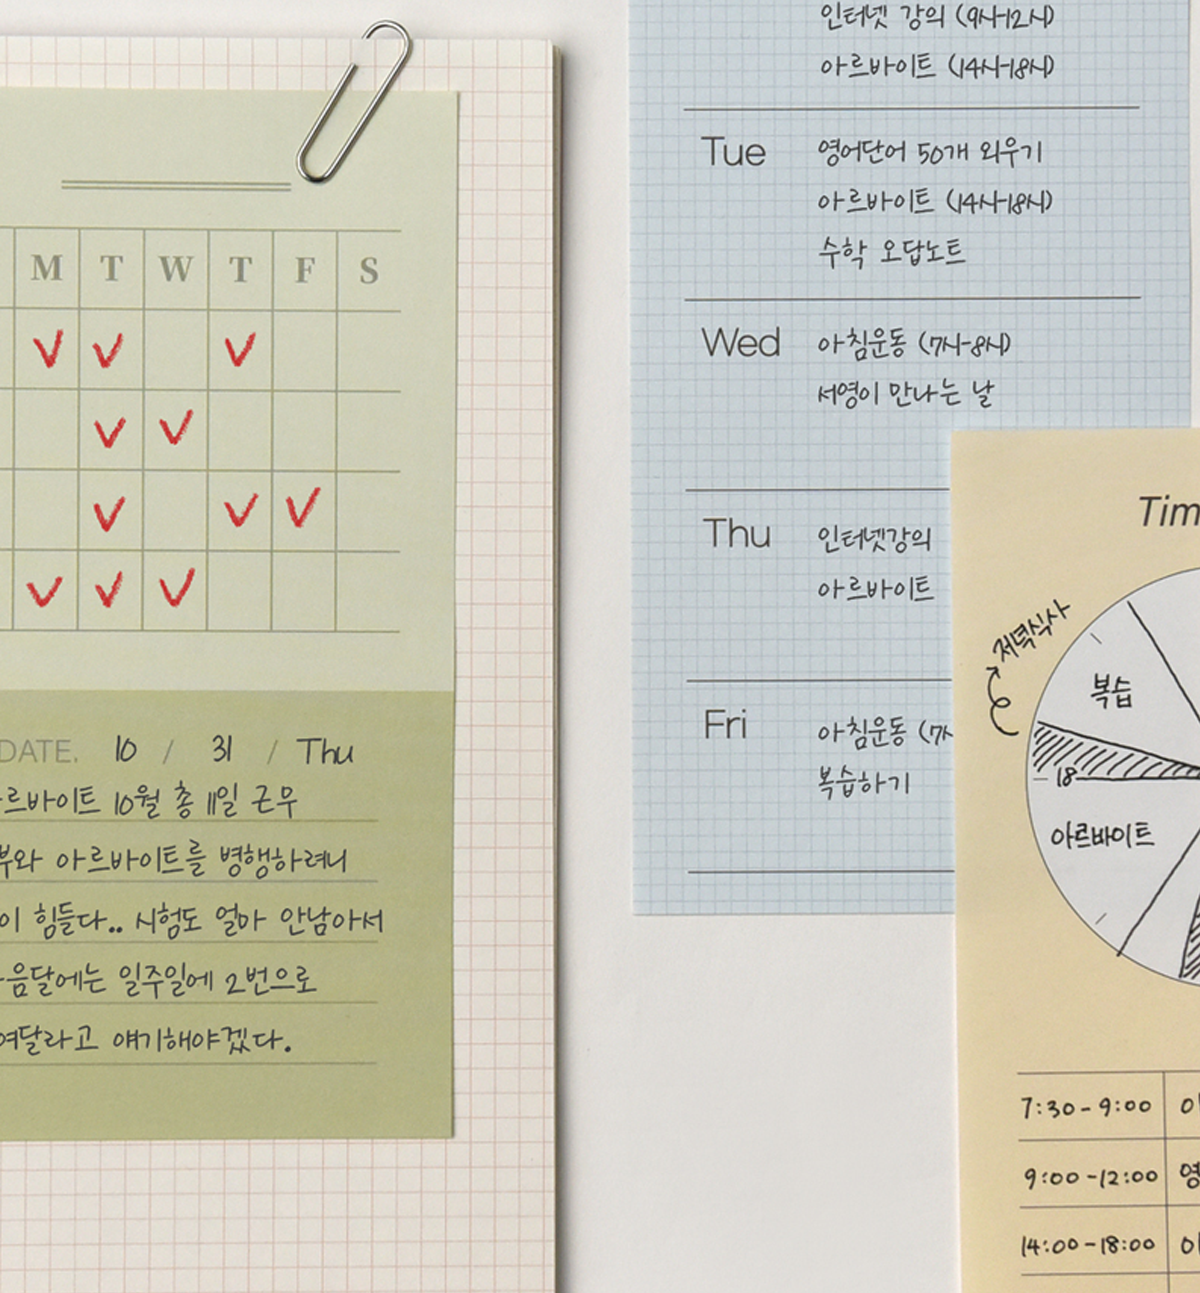 M T W T F S
DATE. 10 / 31 / Thu
르바이트 10월 총 11일 근무
부와 아르바이트를 병행하려니
이 힘들다.. 시험도 얼마 안남아서
음달에는 일주일에 2번으로
여달라고 얘기해야겠다.
인터넷 강의 (9시-12시)
아르바이트 (14시-18시)
Tue 영어단어 50개 외우기
아르바이트 (14시-18시)
수학 오답노트
Wed 아침운동 (7시-8시)
서영이 만나는 날
Thu 인터넷강의
아르바이트
Fri 아침운동 (7시
복습하기
Tim
저녁식사
복습
18
아르바이트
7:30-9:00 아
9:00-12:00 영
14:00-18:00 아